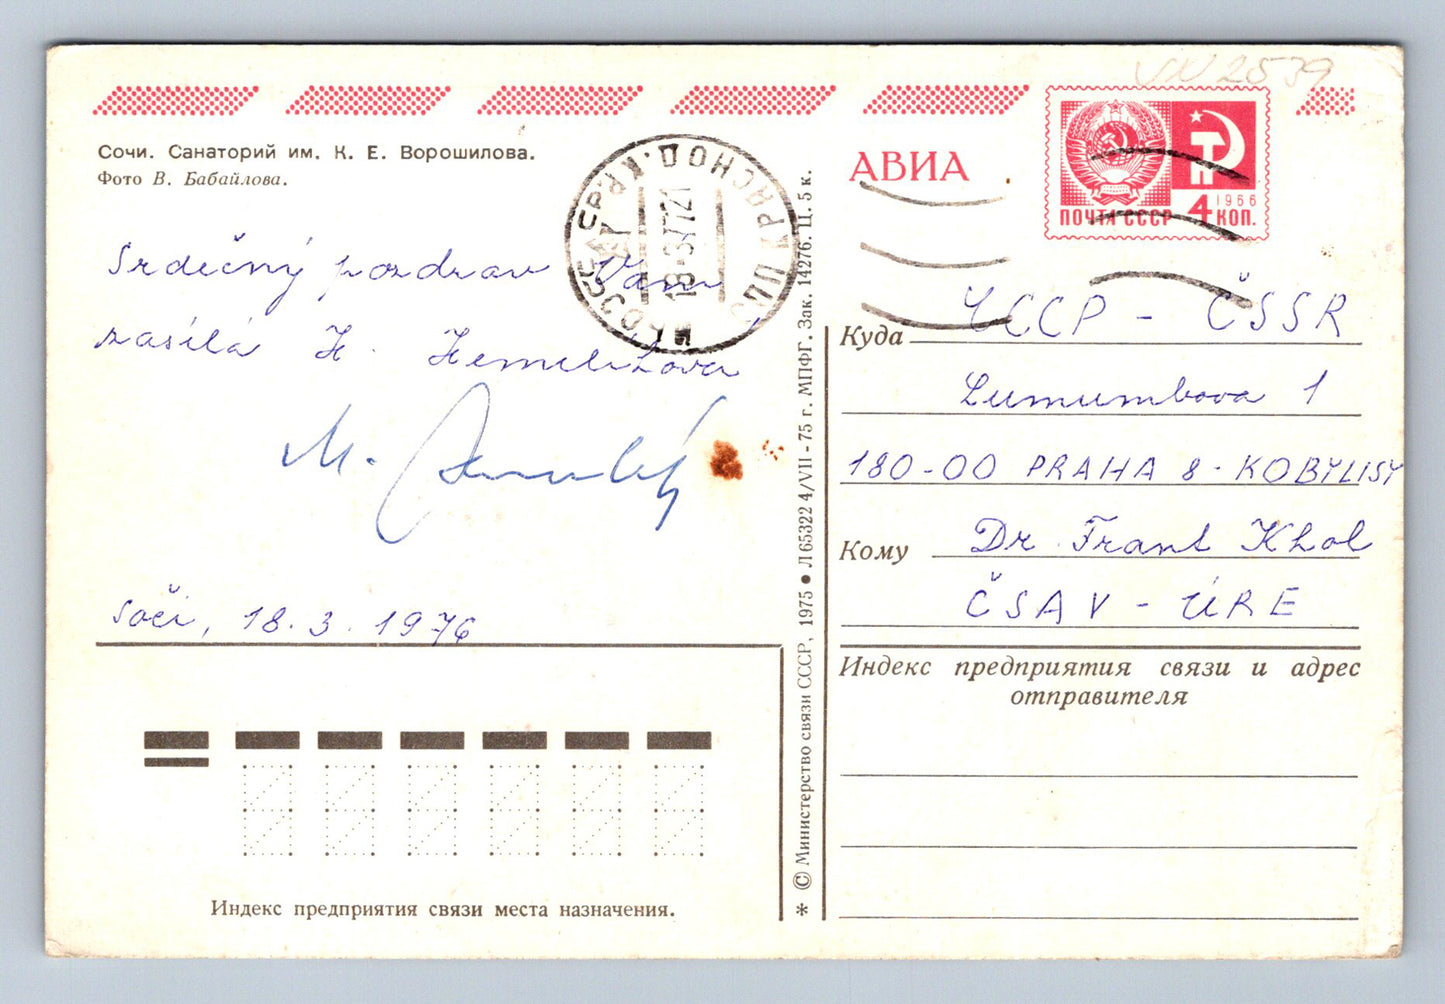 VXV 2539
Сочи. Санаторий им. К. Е. Ворошилова.
Фото В. Бабайлова.
АВИА
1966
ПОЧТА СССР 4 КОП.
КРАСНОД. КР.
Srdečný pozdrav Vám
zasílá H.
M.
Soči, 18. 3. 1976
Индекс предприятия связи места назначения.
* © Министерство связи СССР, 1975 ● Л 65322 4/VII - 75 г. МПФГ. Зак. 14276. Ц. 5 к.
Куда ЧССР - ČSSR
Lumumbova 1
180-00 PRAHA 8 - KOBYLISY
Кому Dr. Frant Khol
ČSAV - ÚRE
Индекс предприятия связи и адрес
отправителя